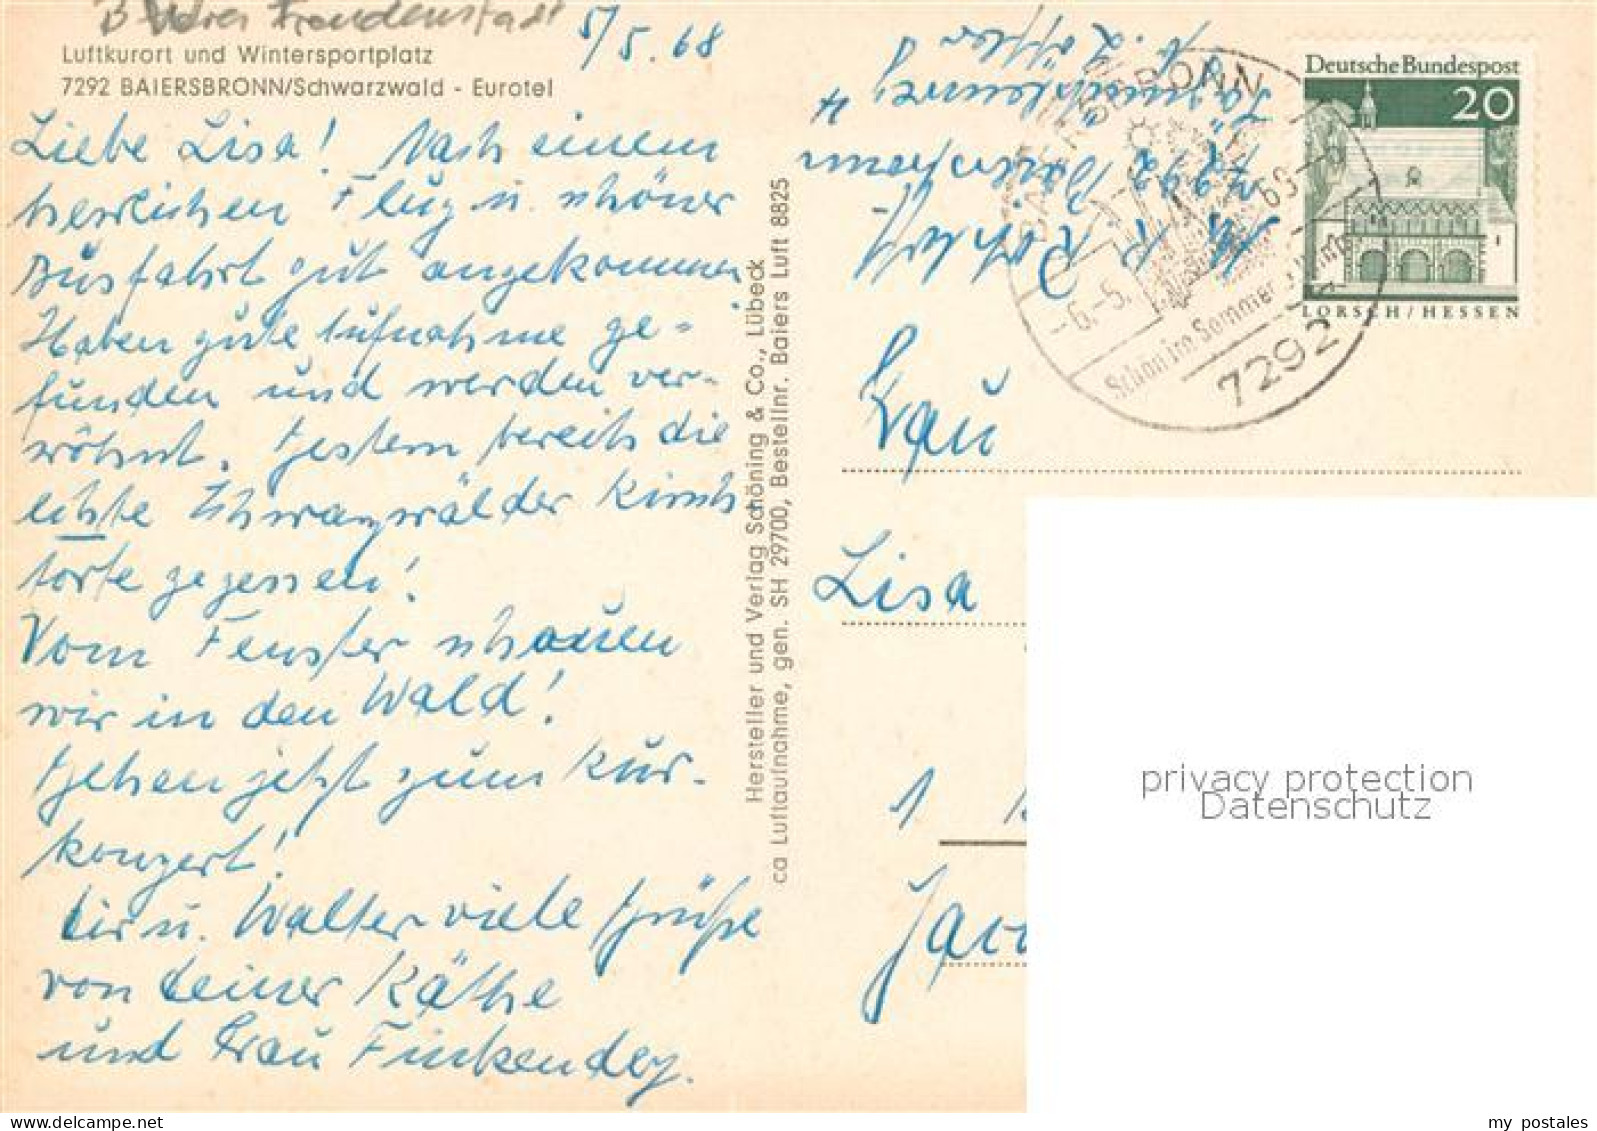 Freudenstadt
5/5.68
Luftkurort und Wintersportplatz
7292 BAIERSBRONN/Schwarzwald - Eurotel
Liebe Lisa! Nach einem
herrlichen Flug u. schöner
Busfahrt gut angekommen
Haben gute Aufnahme ge-
funden und werden ver-
wöhnt. Gestern bereits die
echte Schwarzwälder Kirsch
torte gegessen!
Vom Fenster schauen
wir in den Wald!
Gehen jetzt zum Kur-
konzert!
Dir u. Walter viele Grüße
von Deiner Käthe
und Frau Finkendey.
Hersteller und Verlag Schöning & Co., Lübeck
ca Luftaufnahme, gen. SH 29700, Bestellnr. Baiers Luft 8825
7292
BAIERSBRONN
6.-5.
68-
Schön im Sommer
7292
Deutsche Bundespost
20
LORSCH/HESSEN
Frau
Lisa
1
privacy protection
Datenschutz
my postales